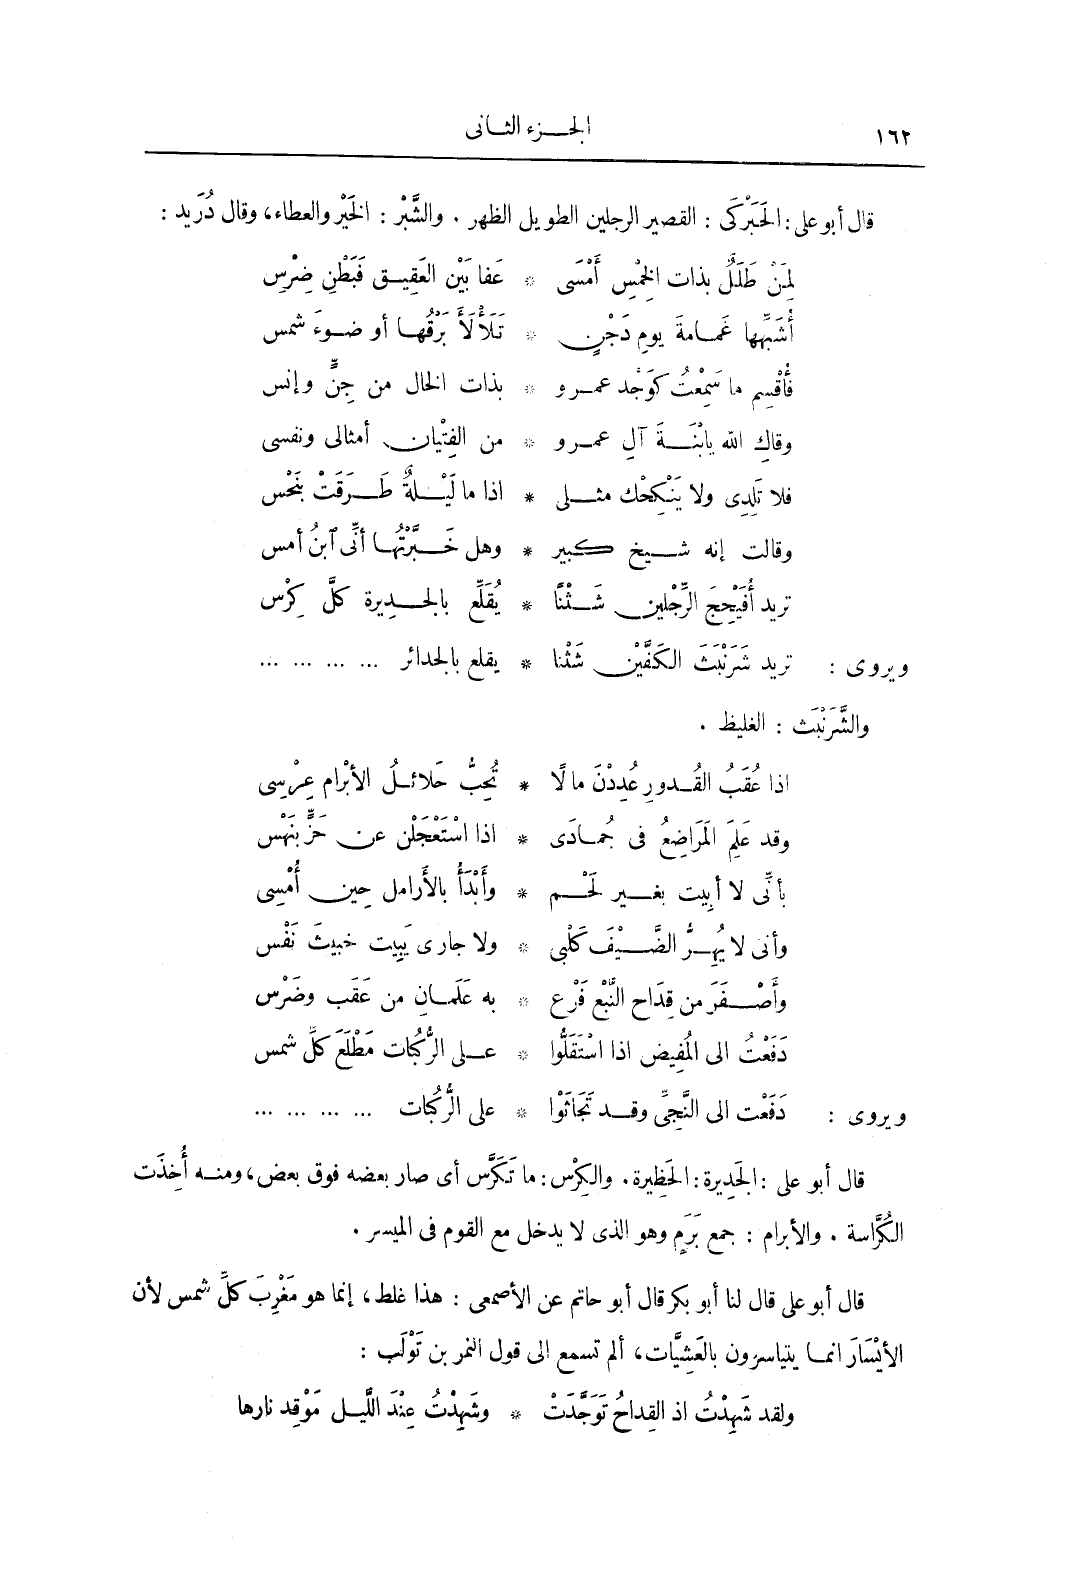 ١٦٢
الجزء الثانى
قال أبو على : الحَبَرْكَى : القصير الرجلين الطويل الظهر . والشَّبْر : الخَيْر والعطاء، وقال دُرَيد :
لمَنْ طَلَلٌ بذات الخِمْسِ أَمْسَى * عَفا بَيْن العَقِيق فَبَطْنِ ضِرْس
أُشَبِّهها غَمامةَ يوم دَجْنٍ * تَلَأْلَأَ بَرْقُها أو ضوءَ شمس
فأُقْسِم ما سَمِعْتُ كوَجْد عمرو * بذات الخال من جِنٍّ وإنس
وقاكِ الله يابْنَةَ آلِ عمرو * من الفِتْيان أمثالى ونفسى
فلا تَلِدِى ولا يَنْكِحْك مثلى * اذا ما لَيْلةٌ طَرَقَتْ بنَحْس
وقالت إنه شيخ كبير * وهل خَبَّرْتُها أنِّى ٱبنُ أمس
تريد أُفَيْحِجَ الرِّجْلين شَثْنًا * يُقَلِّع بالجديرة كلَّ كِرْس
ويروى : تريد شَرَنْبَثَ الكَفَّيْن شَثْنا * يقلع بالجدائر ... ... ... ...
والشَّرَنْبَث : الغليظ .
اذا عُقَبُ القُدورِ عُدِدْنَ مالًا * تُحِبُّ حَلائلُ الأبْرام عِرْسِى
وقد عَلِمَ المَرَاضِعُ فى جُمادَى * اذا اسْتَعْجَلْن عن حَزٍّ بنَهْس
بأنِّى لا أبِيت بغير لَحْم * وأَبْدَأُ بالأرامل حِين أُمْسِى
وأنى لا يُهِرُّ الضَّيْفَ كَلْبِى * ولا جارى يَبِيت خبيثَ نَفْس
وأَصْفَرَ من قِدَاح النَّبْع فَرْع * به عَلَمانِ من عَقَب وضَرْس
دَفَعْتُ الى المُفِيض اذا اسْتَقَلُّوا * على الرُّكُبات مَطْلَعَ كلِّ شمس
ويروى : دَفَعْت الى النَّجِىِّ وقد تَجَاثَوْا * على الرُّكَبات ... ... ... ...
قال أبو على : الجَدِيرة : الحَظِيرة . والكِرْس : ما تَكَرَّس أى صار بعضه فوق بعض، ومنه أُخِذَت
الكُرَّاسة . والأبرام : جمع بَرَمٍ وهو الذى لا يدخل مع القوم فى الميسر .
قال أبو على قال لنا أبو بكر قال أبو حاتم عن الأصمعى : هذا غلط، إنما هو مَغْرِبَ كلِّ شمس لأن
الأَيْسَارَ انما يتياسرون بالعَشِيَّات، ألم تسمع الى قول النمر بن تَوْلَب :
ولقد شَهِدْتُ اذ القِداحُ تَوَحَّدَتْ * وشَهِدْتُ عِنْدَ اللَّيل مَوْقِد نارها